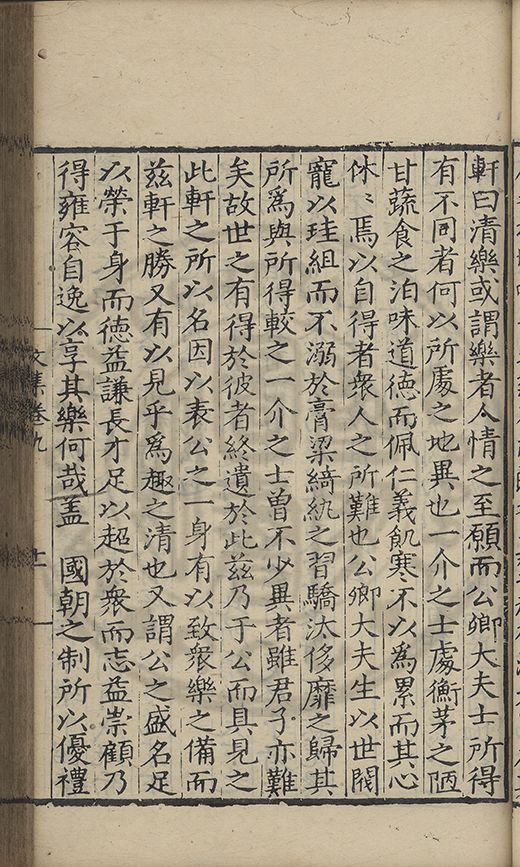 軒曰清樂或謂樂者人情之至願而公卿大夫士所得
有不同者何以所處之地異也一介之士處衡茅之陋
甘蔬食之泊味道德而佩仁義飢寒不以為累而其心
休〻焉以自得者衆人之所難也公卿大夫生以世閥
寵以珪組而不溺於膏粱綺紈之習驕汰侈靡之歸其
所爲與所得較之一介之士曾不少異者雖君子亦難
矣故世之有得於彼者終遺於此兹乃于公而具見之
此軒之所以名因以表公之一身有以致衆樂之備而
兹軒之勝又有以見乎爲趣之清也又謂公之盛名足
以榮于身而德益謙長才足以超於衆而志益崇顧乃
得雍容自逸以享其樂何哉盖　國朝之制所以優禮
文集卷九